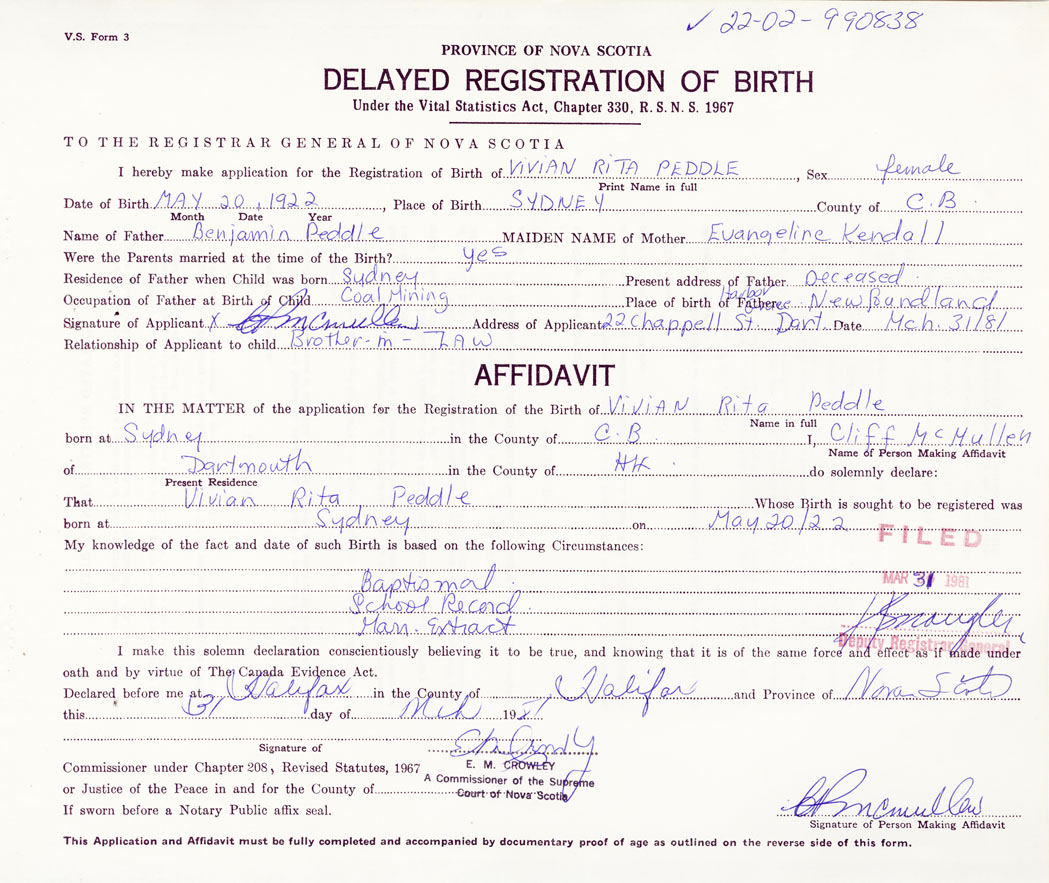 ✓ 22-02-990838
V.S. Form 3
PROVINCE OF NOVA SCOTIA
DELAYED REGISTRATION OF BIRTH
Under the Vital Statistics Act, Chapter 330, R.S.N.S. 1967
TO THE REGISTRAR GENERAL OF NOVA SCOTIA
I hereby make application for the Registration of Birth of VIVIAN RITA PEDDLE, Sex female
Print Name in full
Date of Birth MAY 20, 1922, Place of Birth SYDNEY County of C.B.
Month Date Year
Name of Father Benjamin Peddle MAIDEN NAME of Mother Evangeline Kendall
Were the Parents married at the time of the Birth? yes
Residence of Father when Child was born Sydney Present address of Father Deceased
Occupation of Father at Birth of Child Coal Mining Place of birth of Father Harbor Newfoundland
Signature of Applicant X McMullen Address of Applicant 22 Chappell St. Dart. Date Mch. 31/81
Relationship of Applicant to child Brother-in-LAW
AFFIDAVIT
IN THE MATTER of the application for the Registration of the Birth of Vivian Rita Peddle
Name in full
born at Sydney in the County of C.B. I, Cliff McMullen
Name of Person Making Affidavit
of Dartmouth in the County of HX do solemnly declare:
Present Residence
That Vivian Rita Peddle Whose Birth is sought to be registered was
born at Sydney on May 20/22
FILED
My knowledge of the fact and date of such Birth is based on the following Circumstances:
MAR 31 1981
Baptismal
School Record
Marr. Extract
Deputy Registrar General
I make this solemn declaration conscientiously believing it to be true, and knowing that it is of the same force and effect as if made under
oath and by virtue of The Canada Evidence Act.
Declared before me at Halifax in the County of Halifax and Province of Nova Scotia
this 31 day of Mch 1981
Signature of
Commissioner under Chapter 208, Revised Statutes, 1967 E. M. CROWLEY
A Commissioner of the Supreme
or Justice of the Peace in and for the County of Court of Nova Scotia
If sworn before a Notary Public affix seal.
McMullen
Signature of Person Making Affidavit
This Application and Affidavit must be fully completed and accompanied by documentary proof of age as outlined on the reverse side of this form.